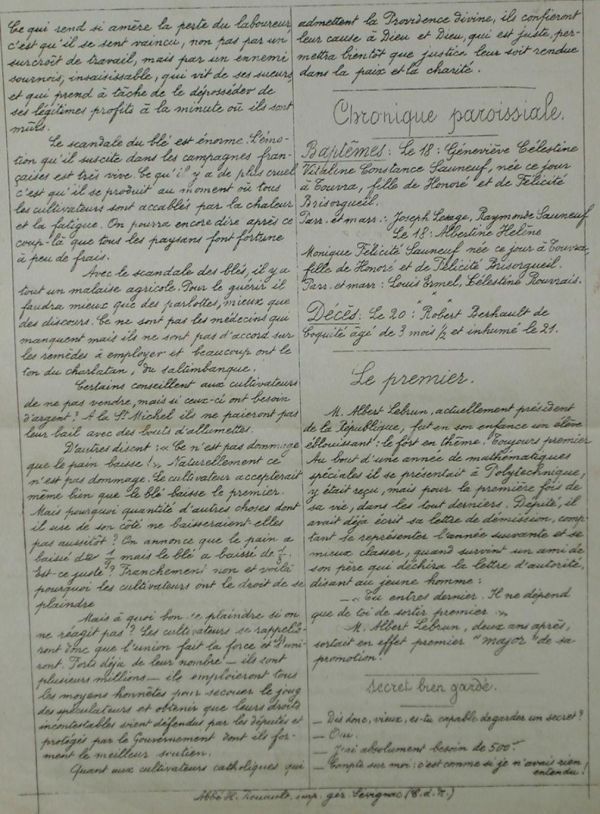 Ce qui rend si amère la perte du laboureur,
c'est qu'il se sent vaincu, non pas par un
surcroît de travail, mais par un ennemi
sournois, insaisissable, qui vit de ses sueurs,
et qui prend à tâche de le déposséder de
ses légitimes profits à la minute où ils sont
mûrs.
Le scandale du blé est énorme. L'émo-
tion qu'il suscite dans les campagnes fran-
çaises est très vive. Ce qu'il y a de plus cruel
c'est qu'il se produit au moment où tous
les cultivateurs sont accablés par la chaleur
et la fatigue. On pourra encore dire après ce
coup-là que tous les paysans font fortune
à peu de frais.
Avec le scandale des blés, il y a
tout un malaise agricole. Pour le guérir il
faudra mieux que des parlottes, mieux que
des discours. Ce ne sont pas les médecins qui
manquent mais ils ne sont pas d'accord sur
les remèdes à employer et beaucoup ont le
ton du charlatan, du saltimbanque.
Certains conseillent aux cultivateurs
de ne pas vendre, mais si ceux-ci ont besoin
d'argent? A la St Michel ils ne paieront pas
leur bail avec des bouts d'allumettes.
D'autres disent: « Ce n'est pas dommage
que le pain baisse! » Naturellement ce
n'est pas dommage. Le cultivateur accepterait
même bien que le blé baisse le premier.
Mais pourquoi quantité d'autres choses dont
il use de son côté ne baisseraient-elles
pas aussitôt? On annonce que le pain a
baissé de mais le blé a baissé de
Est-ce juste? Franchement non et voilà
pourquoi les cultivateurs ont le droit de se
plaindre
Mais à quoi bon se plaindre si on
ne réagit pas? Les cultivateurs se rappelle-
ront donc que l'union fait la force et s'uni-
ront. Forts déjà de leur nombre - ils sont
plusieurs millions - ils emploieront tous
les moyens honnêtes pour secouer le joug
des spéculateurs et obtenir que leurs droits
incontestables soient défendus par les députés et
protégés par le Gouvernement dont ils for-
ment le meilleur soutien.
Quant aux cultivateurs catholiques qui
admettent la Providence divine, ils confieront
leur cause à Dieu et Dieu, qui est juste, per-
mettra bientôt que justice leur soit rendue
dans la paix et la charité.
Chronique paroissiale.
Baptêmes: Le 18: Géneviève Célestine
Vitaline Constance Sauneuf, née ce jour
à Touvra, fille de Honoré et de Félicité
Brisorgueil.
Parr. et marr.: Joseph Lesage, Raymonde Sauneuf
Le 18: Albertine Helène
Monique Félicité Sauneuf née ce jour à Touvra,
fille de Honoré et de Félicité Brisorgueil.
Parr. et marr.: Louis Ermel, Célestine Rouvrais.
Décès: Le 20: Robert Berhault de
Coquité âgé de 3 mois ½ et inhumé le 21.
Le premier.
M. Albert Lebrun, actuellement président
de la République, fut en son enfance un élève
éblouissant: le fort en thème! Toujours premier
Au bout d'une année de mathématiques
spéciales il se présentait à Polytechnique,
y était reçu, mais pour la première fois de
sa vie, dans les tout derniers. Dépité, il
avait déjà écrit sa lettre de démission, comp-
tant se représenter l'année suivante et se
mieux classer, quand survint un ami de
son père qui déchira la lettre d'autorité,
disant au jeune homme:
- « Tu entres dernier. Il ne dépend
que de toi de sortir premier. »
M. Albert Lebrun, deux ans après,
sortait en effet premier "major" de sa
promotion!
Secret bien gardé.
- Dis donc, vieux, es-tu capable de garder un secret?
- Oui.
- J'ai absolument besoin de 500f.
- Compte sur moi: c'est comme si je n'avais rien
entendu!
Abbé H. Rouault, imp. gér. Sévignac (C.d.N.)